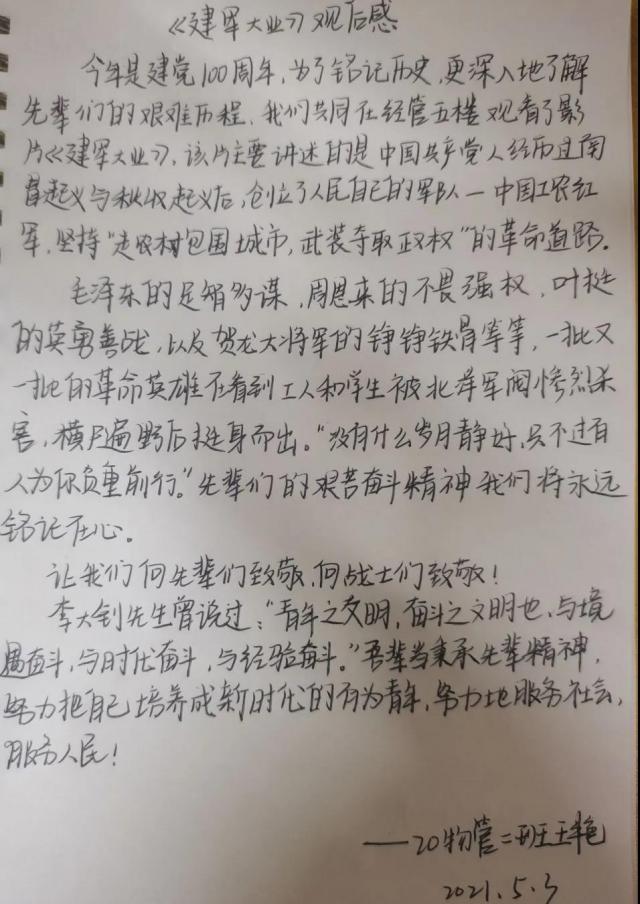 《建军大业》观后感
今年是建党100周年,为了铭记历史,更深入地了解
先辈们的艰难历程,我们共同在经管五楼观看了影
片《建军大业》,该片主要讲述的是中国共产党人经历过南
昌起义与秋收起义后,创立了人民自己的军队—中国工农红
军,坚持“走农村包围城市,武装夺取政权”的革命道路。
毛泽东的足智多谋,周恩来的不畏强权,叶挺
的英勇善战,以及贺龙大将军的铮铮铁骨等等,一批又
一批的革命英雄在看到工人和学生被北洋军阀惨烈杀
害,横尸遍野后挺身而出。“没有什么岁月静好,只不过有
人为你负重前行。”先辈们的艰苦奋斗精神我们将永远
铭记在心。
让我们向先辈们致敬,向战士们致敬!
李大钊先生曾说过:“青年之文明,奋斗之文明也,与境
遇奋斗,与时代奋斗,与经验奋斗。”吾辈当秉承先辈精神,
努力把自己培养成新时代的有为青年,努力地服务社会,
服务人民!
——20物管二班王艳
2021.5.3